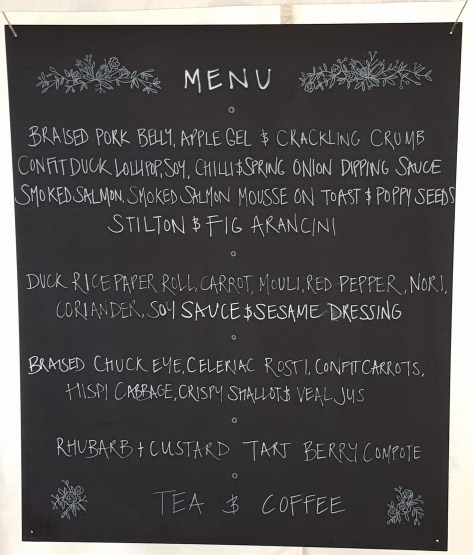 MENU
BRAISED PORK BELLY, APPLE GEL & CRACKLING CRUMB
CONFIT DUCK LOLLIPOP, SOY, CHILLI & SPRING ONION DIPPING SAUCE
SMOKED SALMON, SMOKED SALMON MOUSSE ON TOAST & POPPY SEEDS
STILTON & FIG ARANCINI
DUCK RICE PAPER ROLL, CARROT, MOULI, RED PEPPER, NORI,
CORIANDER, SOY SAUCE & SESAME DRESSING
BRAISED CHUCK EYE, CELERIAC ROSTI, CONFIT CARROTS,
HISPI CABBAGE, CRISPY SHALLOTS & VEAL JUS
RHUBARB + CUSTARD TART BERRY COMPOTE
TEA & COFFEE